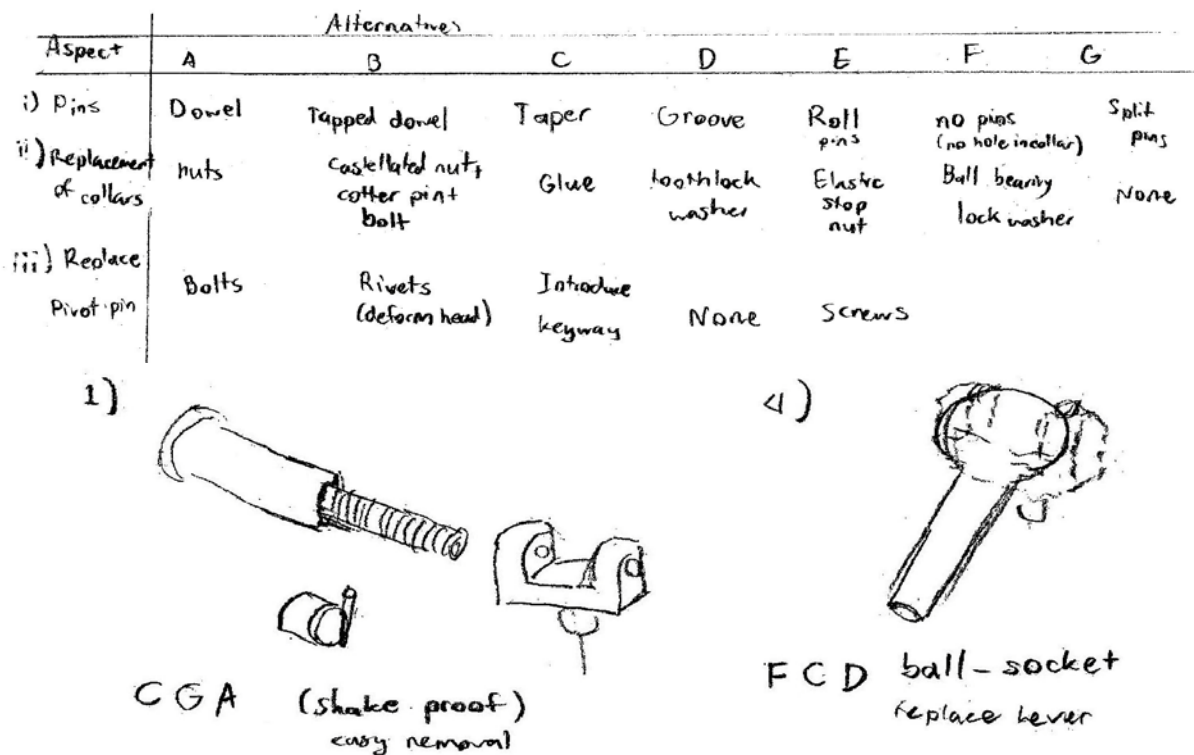 Alternatives
Aspect A B C D E F G
i) Pins Dowel Tapped dowel Taper Groove Roll pins no pins (no hole in collar) Split pins
ii) Replacement of collars nuts castellated nut + cotter pin + bolt Glue toothlock washer Elastic stop nut Ball bearing lock washer None
iii) Replace Pivot pin Bolts Rivets (deform head) Introduce keyway None Screws
1)
4)
C G A (shake proof)
easy removal
F C D ball-socket
replace lever